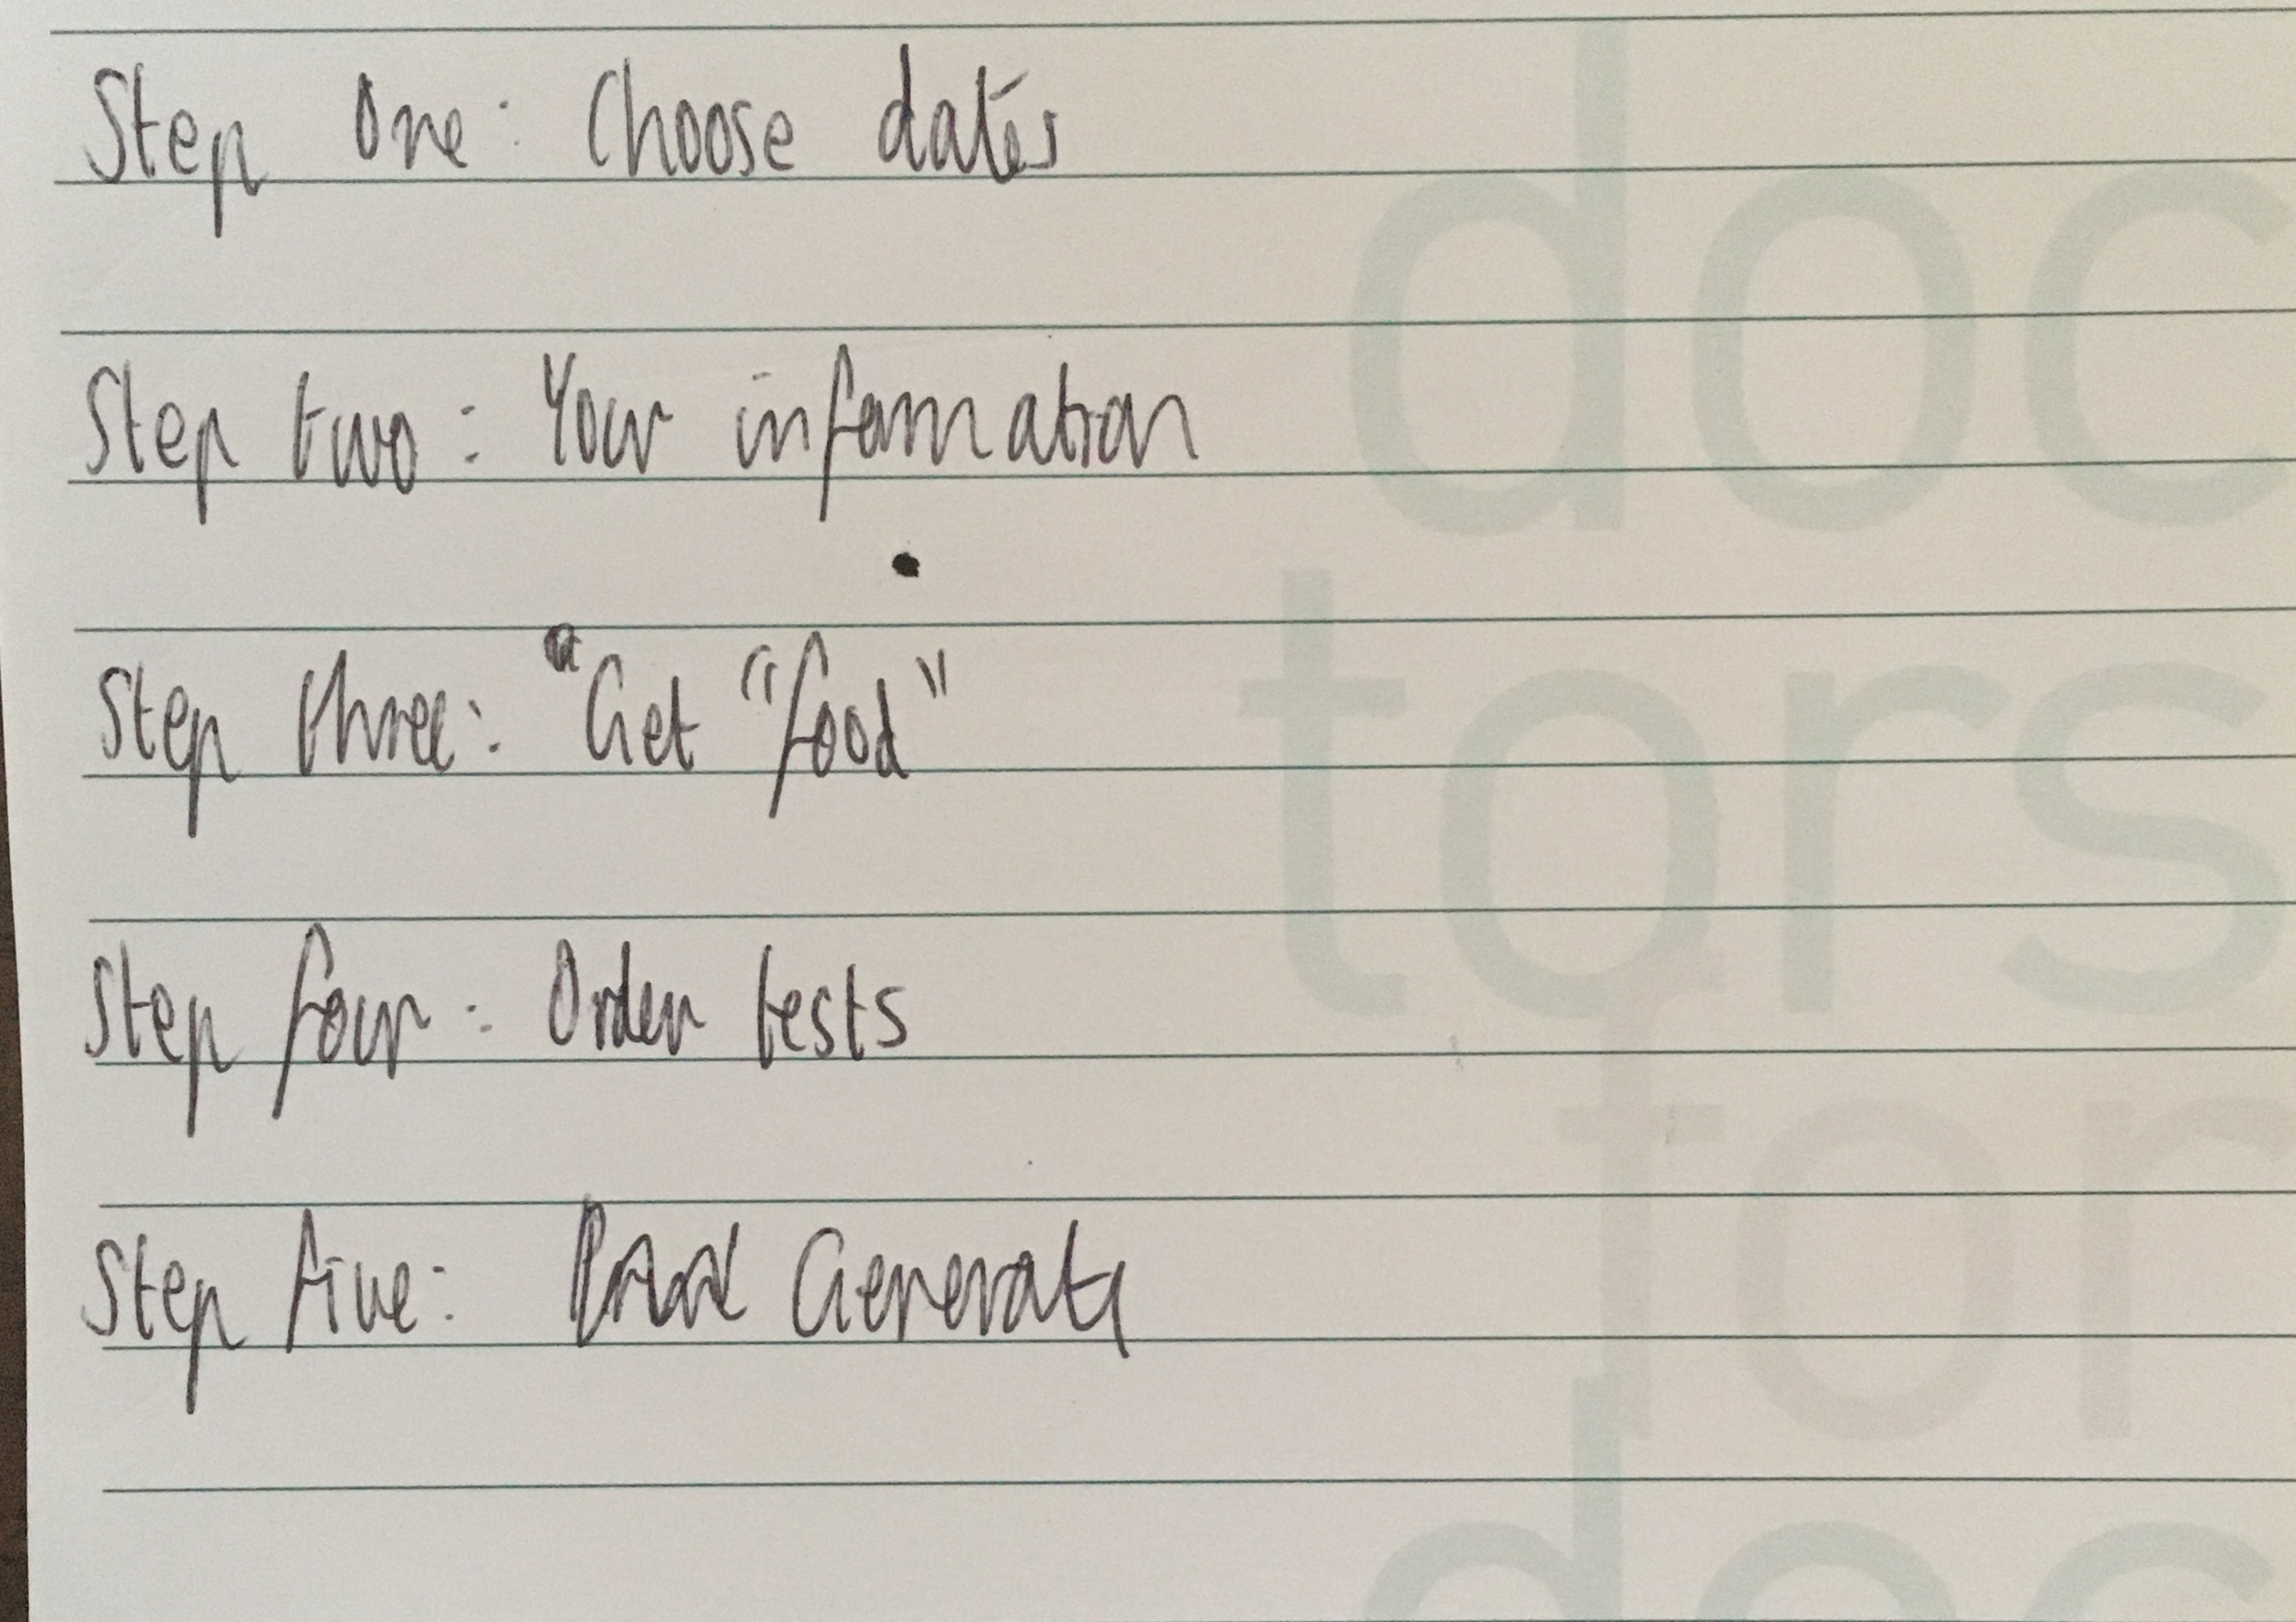 Step One: Choose dates
Step two: Your information
Step three: "Get "food"
Step four: Order tests
Step five: Generate
doc
tors
for
doc